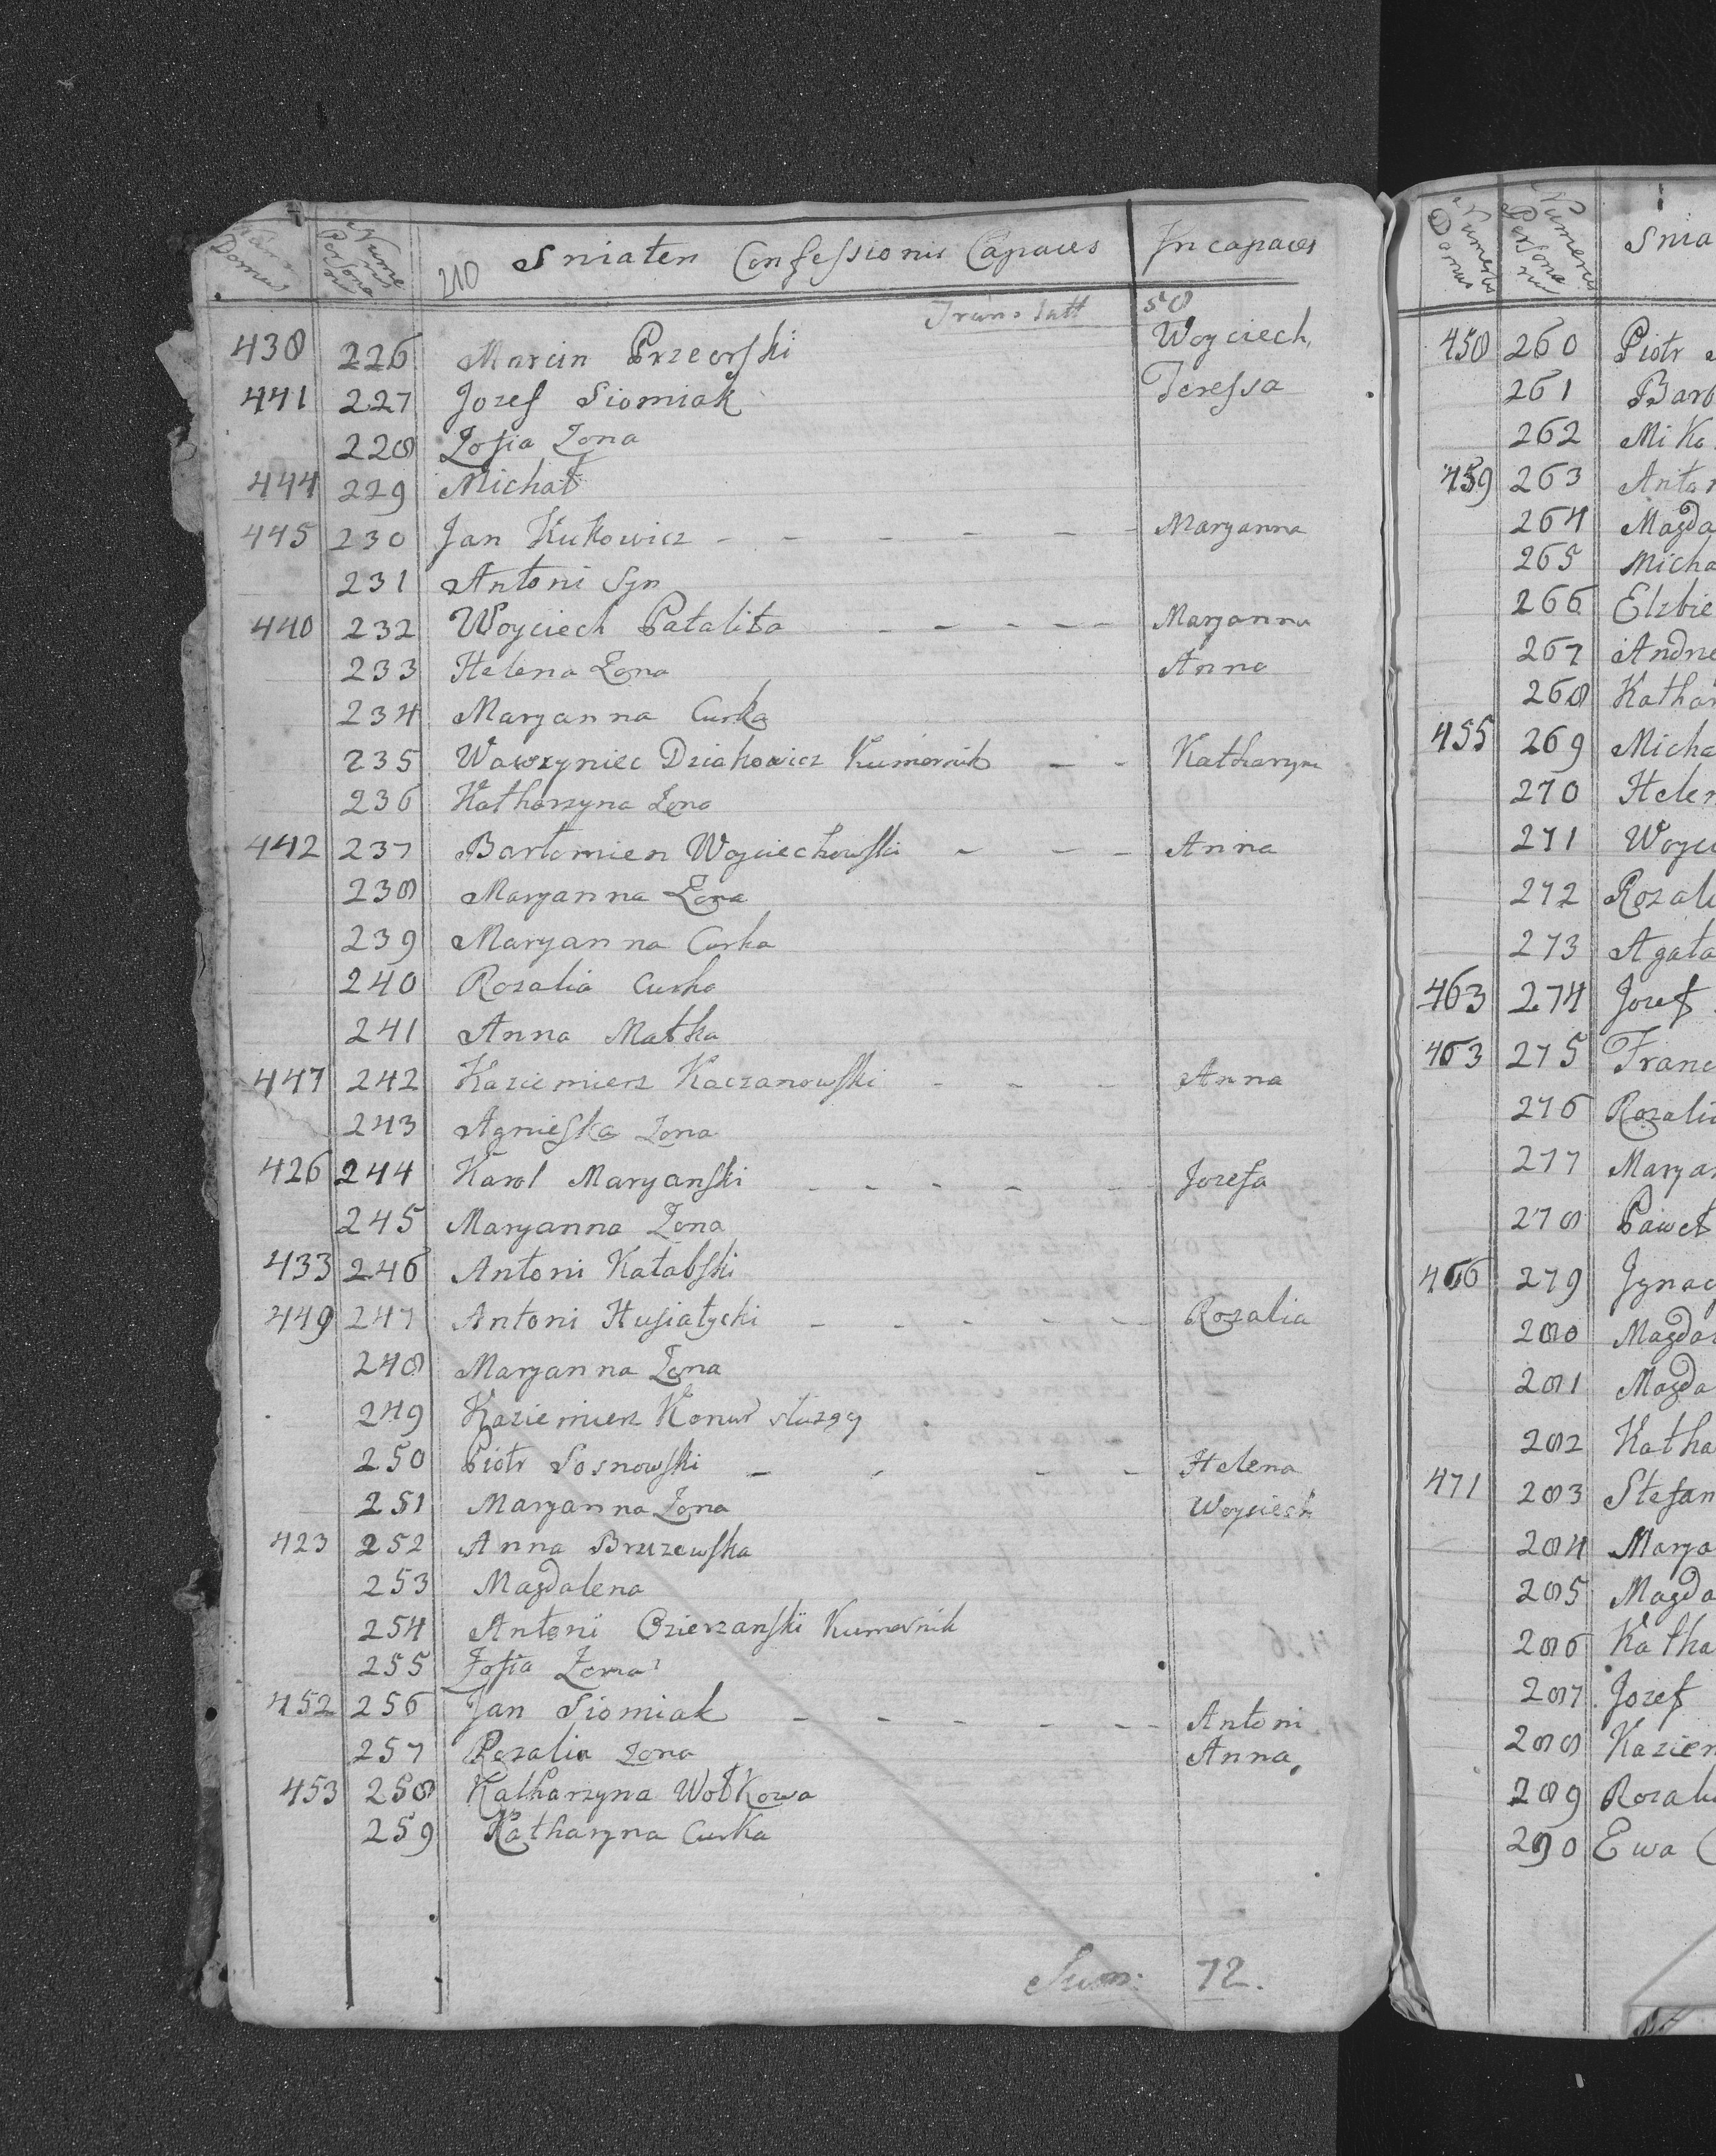 Numerus Domus Numerus Personarum 210 Sniaten Confessionis Capaces Incapaces
Translatt 58
438 226 Marcin Przeorski Woyciech
441 227 Jozef Siomiak Teressa
228 Zofia Zona
444 229 Michał
445 230 Jan Kukowicz - - - - - - Maryanna
231 Antoni Syn
440 232 Woyciech Patalita - - - - - Maryanna
233 Helena Zona Anna
234 Maryanna Curka
235 Wawrzyniec Dziakowicz Kumornik - - Katharzyna
236 Katharzyna Zona
442 237 Bartomien Woyciechowski - - - Anna
238 Maryanna Zona
239 Maryanna Curka
240 Rozalia Curka
241 Anna Matka
447 242 Kaziemierz Kaczanowski - - - Anna
243 Agnieska Zona
426 244 Karol Maryanski - - - - - Jozefa
245 Maryanna Zona
433 246 Antoni Katabski
449 247 Antoni Husiatycki - - - - - Rozalia
248 Maryanna Zona
249 Kaziemierz
250 Piotr Sosnowski - - - - Helena
251 Maryanna Zona Woyciech
423 252 Anna Bruzewska
253 Magdalena
254 Antoni Ozierzanski Kumornik
255 Zofia Zona
452 256 Jan Siomiak - - - - - - Antoni
257 Rozalia Zona Anna
453 258 Katharzyna Wołkowa
259 Katharyna Curka
Sum: 72.
Numerus Domus Numerus Personarum Snia
458 260 Piotr
261 Barb
262 Miko
459 263 Anton
264 Magda
265 Micha
266 Elzbie
267 Andrze
268 Kathar
455 269 Micha
270 Helen
271 Woyci
272 Rozali
273 Agata
463 274 Jozef
463 275 Franc
276 Rozalia
277 Maryan
278 Paweł
466 279 Jgnac
280 Magdal
281 Magda
282 Katha
471 283 Stefan
284 Marya
285 Magda
286 Katha
287 Jozef
288 Kaziem
289 Rozali
290 Ewa C